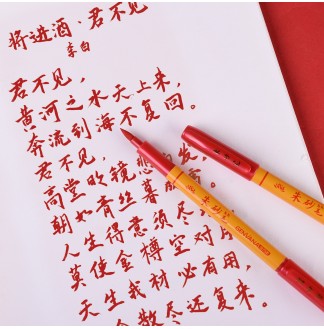 将进酒·君不见
李白
君不见，
黄河之水天上来，
奔流到海不复回。
君不见，
高堂明镜悲 发，
朝如青丝暮
人生得意须尽
莫使金樽空对
天生我材必有用，
散尽还复来。
朱砂
朱砂